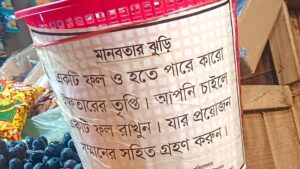 মানবতার ঝুড়ি
একটি ফল ও হতে পারে কারো
ইফতারের তৃপ্তি। আপনি চাইলে
একটি ফল রাখুন। যার প্রয়োজন
সম্মানের সহিত গ্রহণ করুন।